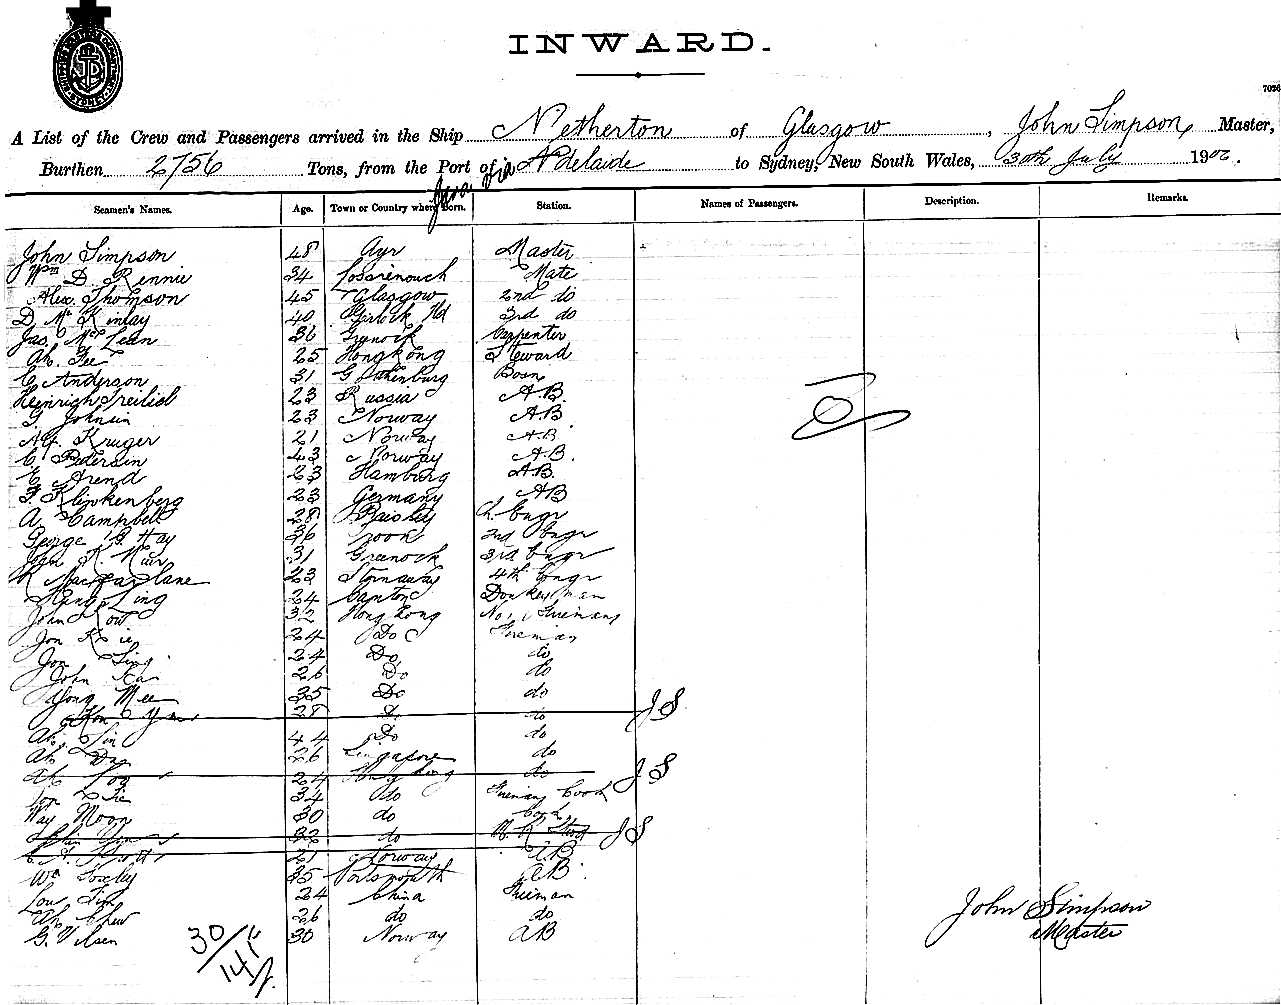 INWARD.
7036
A List of the Crew and Passengers arrived in the Ship Netherton of Glasgow, John Simpson, Master,
Burthen 2756 Tons, from the Port of Java via Adelaide to Sydney, New South Wales, 30th July 1902.
Seamen's Names. Age. Town or Country where Born. Station. Names of Passengers. Description. Remarks.
John Simpson 48 Ayr Master
Wm D. Rennie 34 Mate
Alex. Thomson 45 Glasgow 2nd do
D. Mc Kinlay 40 Garelock Hd 3rd do
Jas. McLean 36 Greenock Carpenter
Ah. Fee 25 Hongkong Steward
C. Anderson 31 Gothenburg Bosn
Heinrich 23 Russia A.B.
Johnsin 23 Norway A.B.
Alf. Kruger 21 Norway A.B
C. Pedersin 43 Norway A.B.
E. Arend 23 Hamburg A.B.
F. Klinkenberg 23 Germany AB
A. Campbell 28 Paisley Ch. Engr
George G. Hay 36 2nd Engr
John R. Muir 31 Greenock 3rd Engr
R MacFarlane 23 Stornaway 4th Engr
Ling 24 Canton Donkeyman
John Kow 32 Hong Kong No. 1 Firemans
Jon Kie 24 Do Fireman
Jon Sing 24 Do do
John Ka 26 Do do
Yong Mee 35 Do do
28 do J S
Ah. Sin 44 Do do
Ah. 26 Singapore do
Ah 24 Hong Kong do J S
34 do Firemans Cook
Way Moon 30 do Cook
32 do J S
21 Norway AB
Wm 35 Portsmouth AB.
Low 24 China Fireman
Ah. Chew 26 do do
G. Nilsen 30 Norway AB
John Simpson
Master
30/141